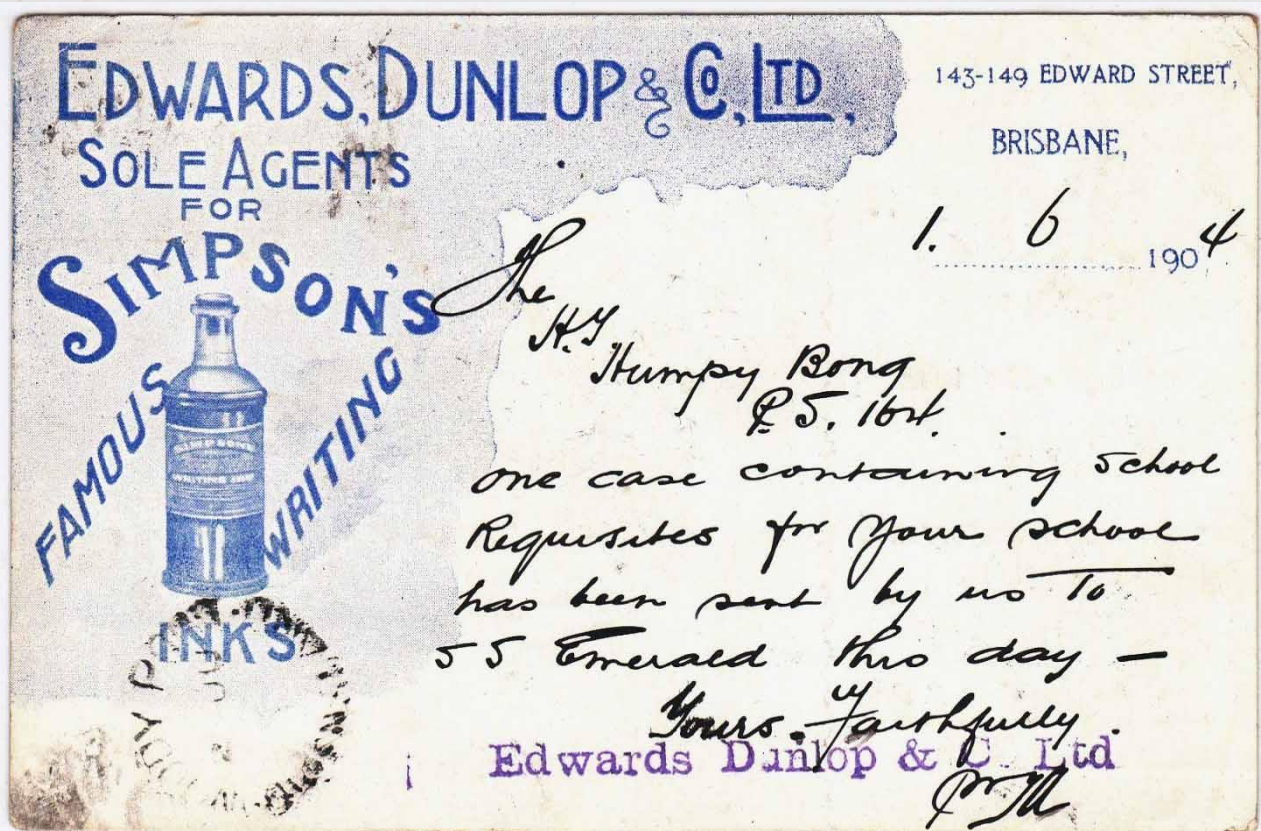 EDWARDS, DUNLOP & CO, LTD,
SOLE AGENTS
FOR
SIMPSON'S
FAMOUS WRITING
INKS
SIMPSON'S
143-149 EDWARD STREET,
BRISBANE,
1. 6 1904
The
H.T.
Humpy Bong
P.S. 164.
one case containing School
Requisites for your school
has been sent by us To
SS Emerald this day —
Yours Faithfully
Edwards Dunlop & C. Ltd